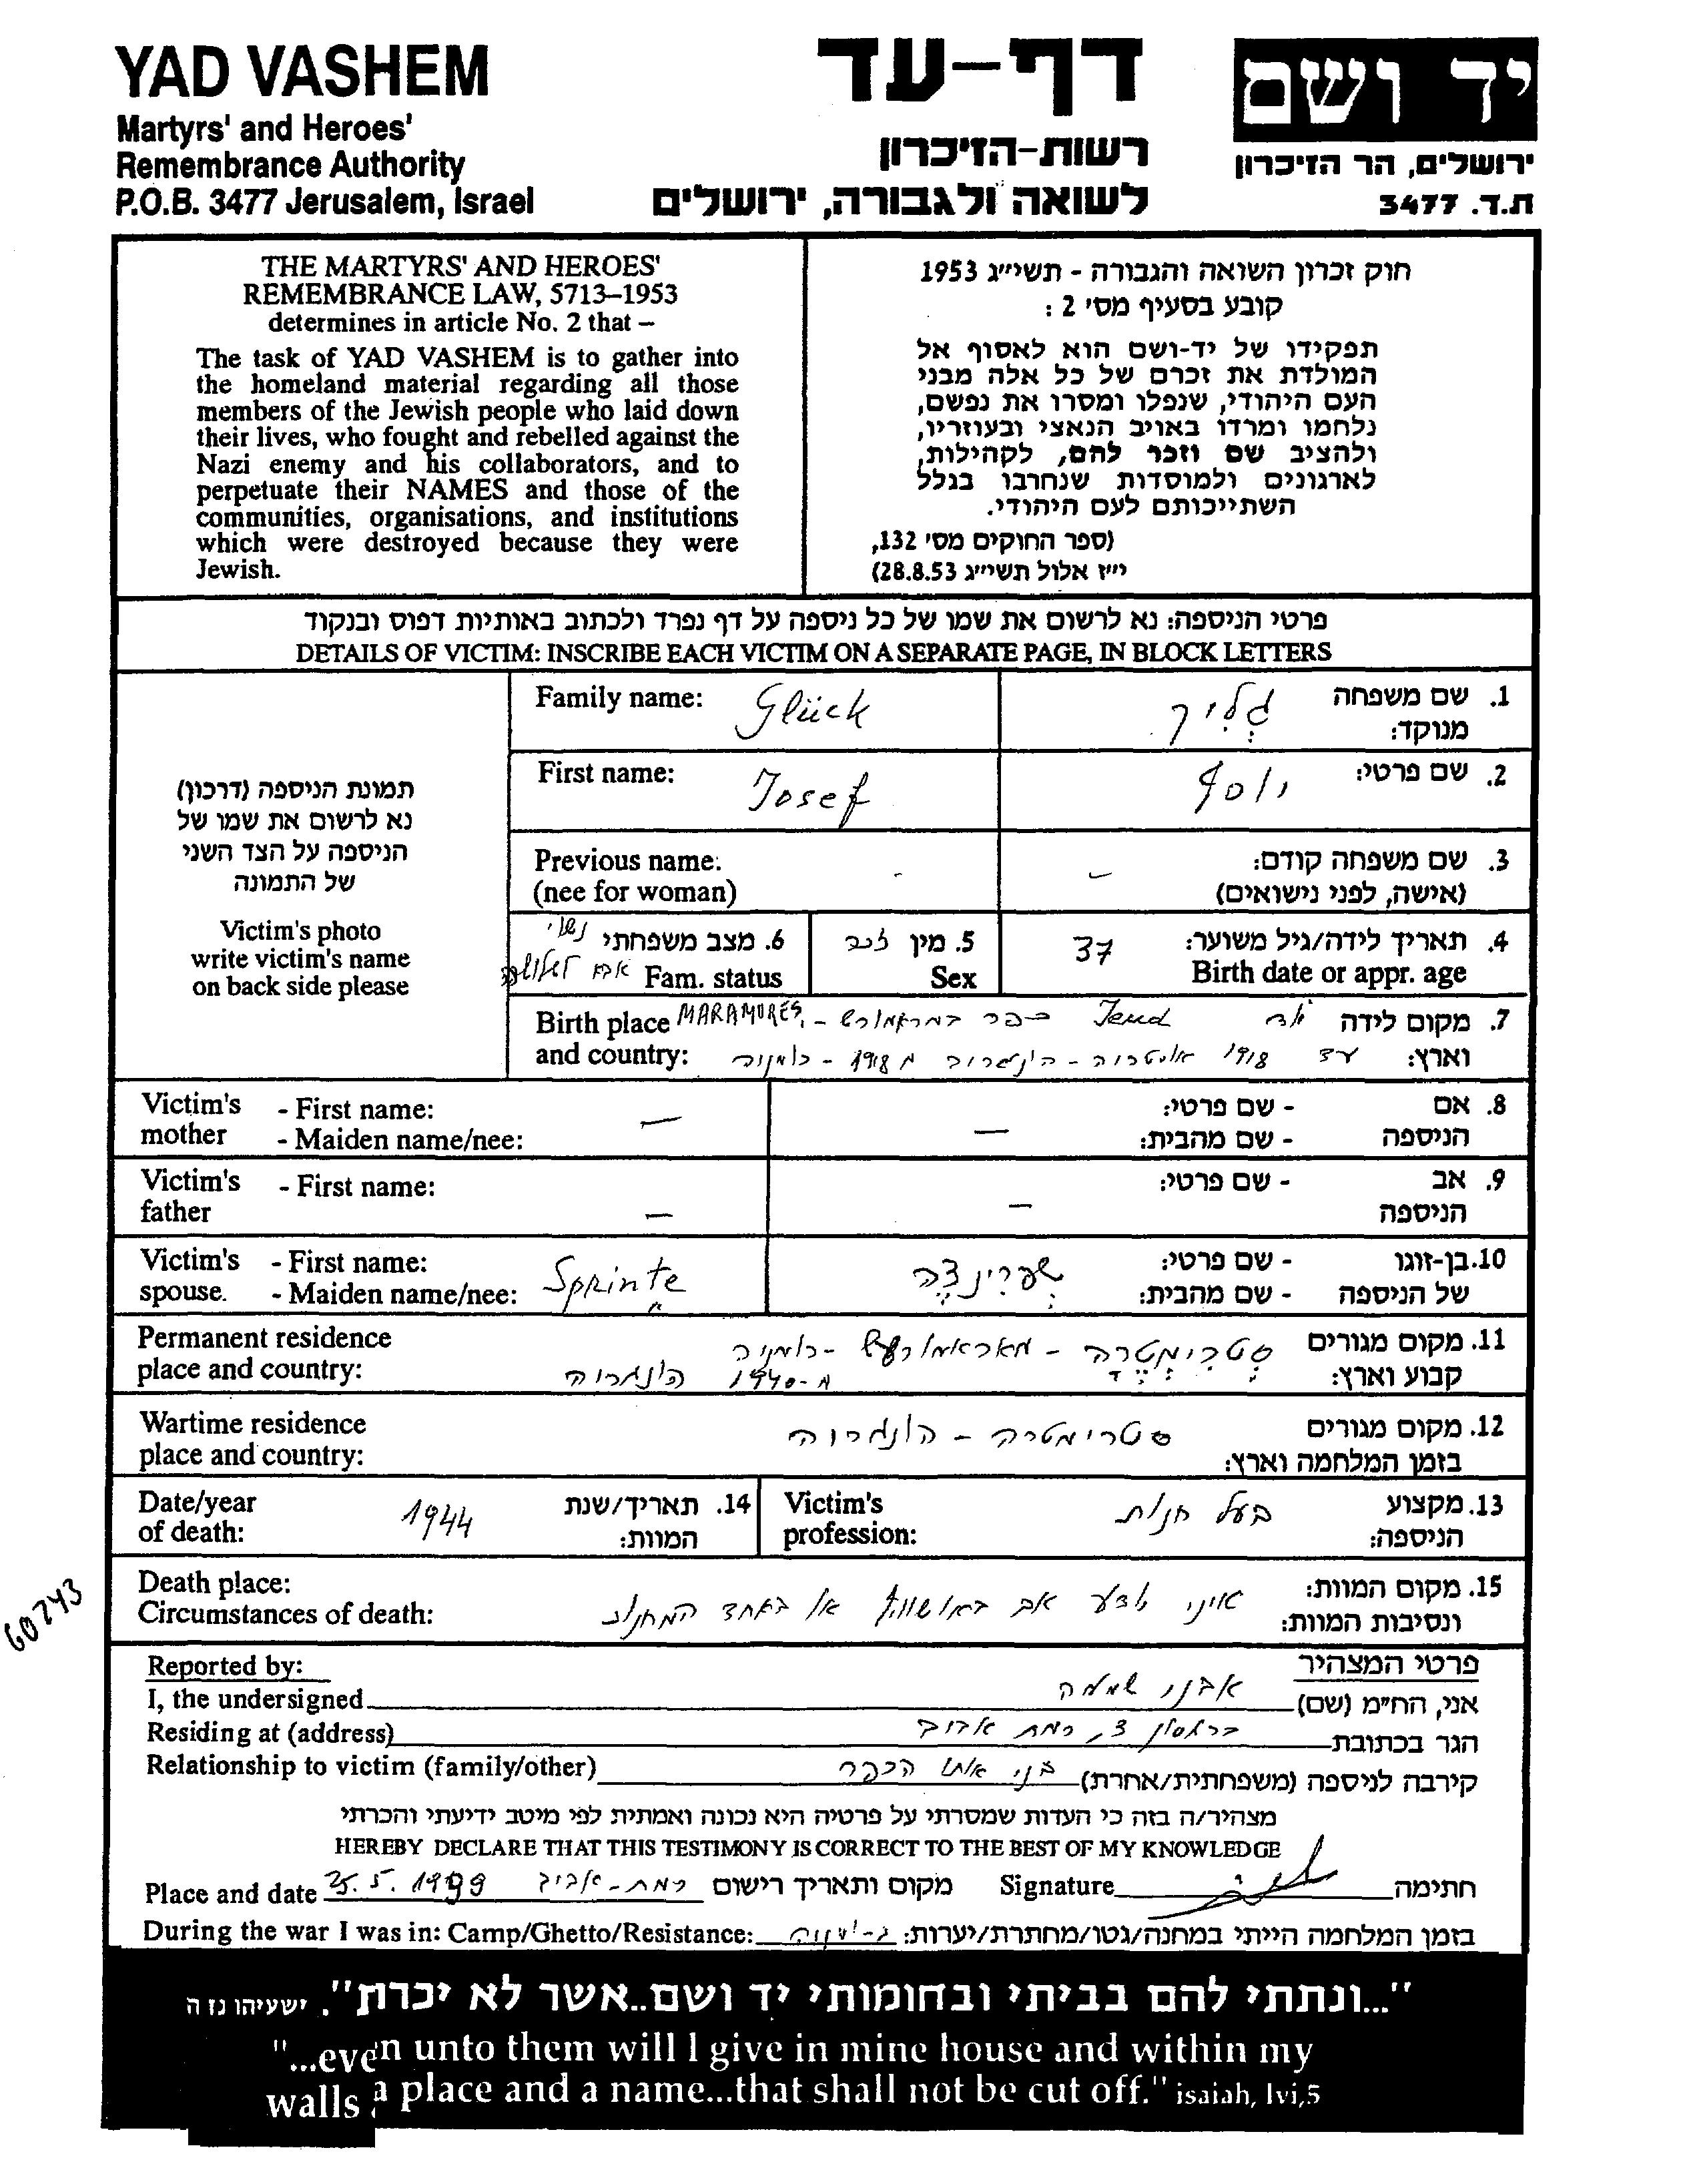 YAD VASHEM
Martyrs' and Heroes'
Remembrance Authority
P.O.B. 3477 Jerusalem, Israel
דף-עד
רשות-הזיכרון
לשואה ולגבורה, ירושלים
יד ושם
ירושלים, הר הזיכרון
ת.ד. 3477
THE MARTYRS' AND HEROES'
REMEMBRANCE LAW, 5713–1953
determines in article No. 2 that –
The task of YAD VASHEM is to gather into
the homeland material regarding all those
members of the Jewish people who laid down
their lives, who fought and rebelled against the
Nazi enemy and his collaborators, and to
perpetuate their NAMES and those of the
communities, organisations, and institutions
which were destroyed because they were
Jewish.
חוק זכרון השואה והגבורה - תשי״ג 1953
קובע בסעיף מס׳ 2 :
תפקידו של יד-ושם הוא לאסוף אל
המולדת את זכרם של כל אלה מבני
העם היהודי, שנפלו ומסרו את נפשם,
נלחמו ומרדו באויב הנאצי ובעוזריו,
ולהציב שם וזכר להם, לקהילות,
לארגונים ולמוסדות שנחרבו בגלל
השתייכותם לעם היהודי.
(ספר החוקים מס׳ 132,
י״ז אלול תשי״ג 28.8.53)
פרטי הניספה: נא לרשום את שמו של כל ניספה על דף נפרד ולכתוב באותיות דפוס ובנקוד
DETAILS OF VICTIM: INSCRIBE EACH VICTIM ON A SEPARATE PAGE, IN BLOCK LETTERS
תמונת הניספה (דרכון)
נא לרשום את שמו של
הניספה על הצד השני
של התמונה
Victim's photo
write victim's name
on back side please
1. שם משפחה
מנוקד: גְלִיק
Family name: Glück
2. שם פרטי: יוסף
First name: Josef
3. שם משפחה קודם: -
(אישה, לפני נישואים)
Previous name: -
(nee for woman)
4. תאריך לידה/גיל משוער: 37
Birth date or appr. age
5. מין זכר
Sex
6. מצב משפחתי נשוי
Fam. status אבא
7. מקום לידה Jeud כפר במראמורש - MARAMUREŞ Birth place
וארץ: עד 1918 אוסטריה - הונגריה מ 1918 - רומניה and country:
8. אם - שם פרטי: —
הניספה - שם מהבית:
Victim's - First name: —
mother - Maiden name/nee:
9. אב - שם פרטי:
הניספה —
Victim's - First name:
father —
10. בן-זוגו - שם פרטי: שפרינצה
של הניספה - שם מהבית:
Victim's - First name: Sprințe
spouse. - Maiden name/nee:
11. מקום מגורים סטרימטרה - מאראמורש - רומניה
קבוע וארץ: מ-1940 הונגריה
Permanent residence
place and country:
12. מקום מגורים סטרימטרה - הונגריה
בזמן המלחמה וארץ:
Wartime residence
place and country:
13. מקצוע בעל חנות
הניספה:
Victim's
profession:
14. תאריך/שנת 1944
המוות:
Date/year
of death:
15. מקום המוות: אינני יודע אם באושוויץ או באחד המחנות
ונסיבות המוות:
Death place:
Circumstances of death:
60743
פרטי המצהיר
Reported by:
אני, הח״מ (שם) אבני שלמה
I, the undersigned
הגר בכתובת רמת אביב
Residing at (address)
קירבה לניספה (משפחתית/אחרת) בני אותו הכפר
Relationship to victim (family/other)
מצהיר/ה בזה כי העדות שמסרתי על פרטיה היא נכונה ואמתית לפי מיטב ידיעתי והכרתי
HEREBY DECLARE THAT THIS TESTIMONY IS CORRECT TO THE BEST OF MY KNOWLEDGE
Place and date 25.5.1999 רמת-אביב מקום ותאריך רישום Signature חתימה
During the war I was in: Camp/Ghetto/Resistance: בזמן המלחמה הייתי במחנה/גטו/מחתרת/יערות:
"...ונתתי להם בביתי ובחומותי יד ושם..אשר לא יכרת". ישעיהו נז ה
"...even unto them will I give in mine house and within my
walls a place and a name...that shall not be cut off." isaiah, lvi,5